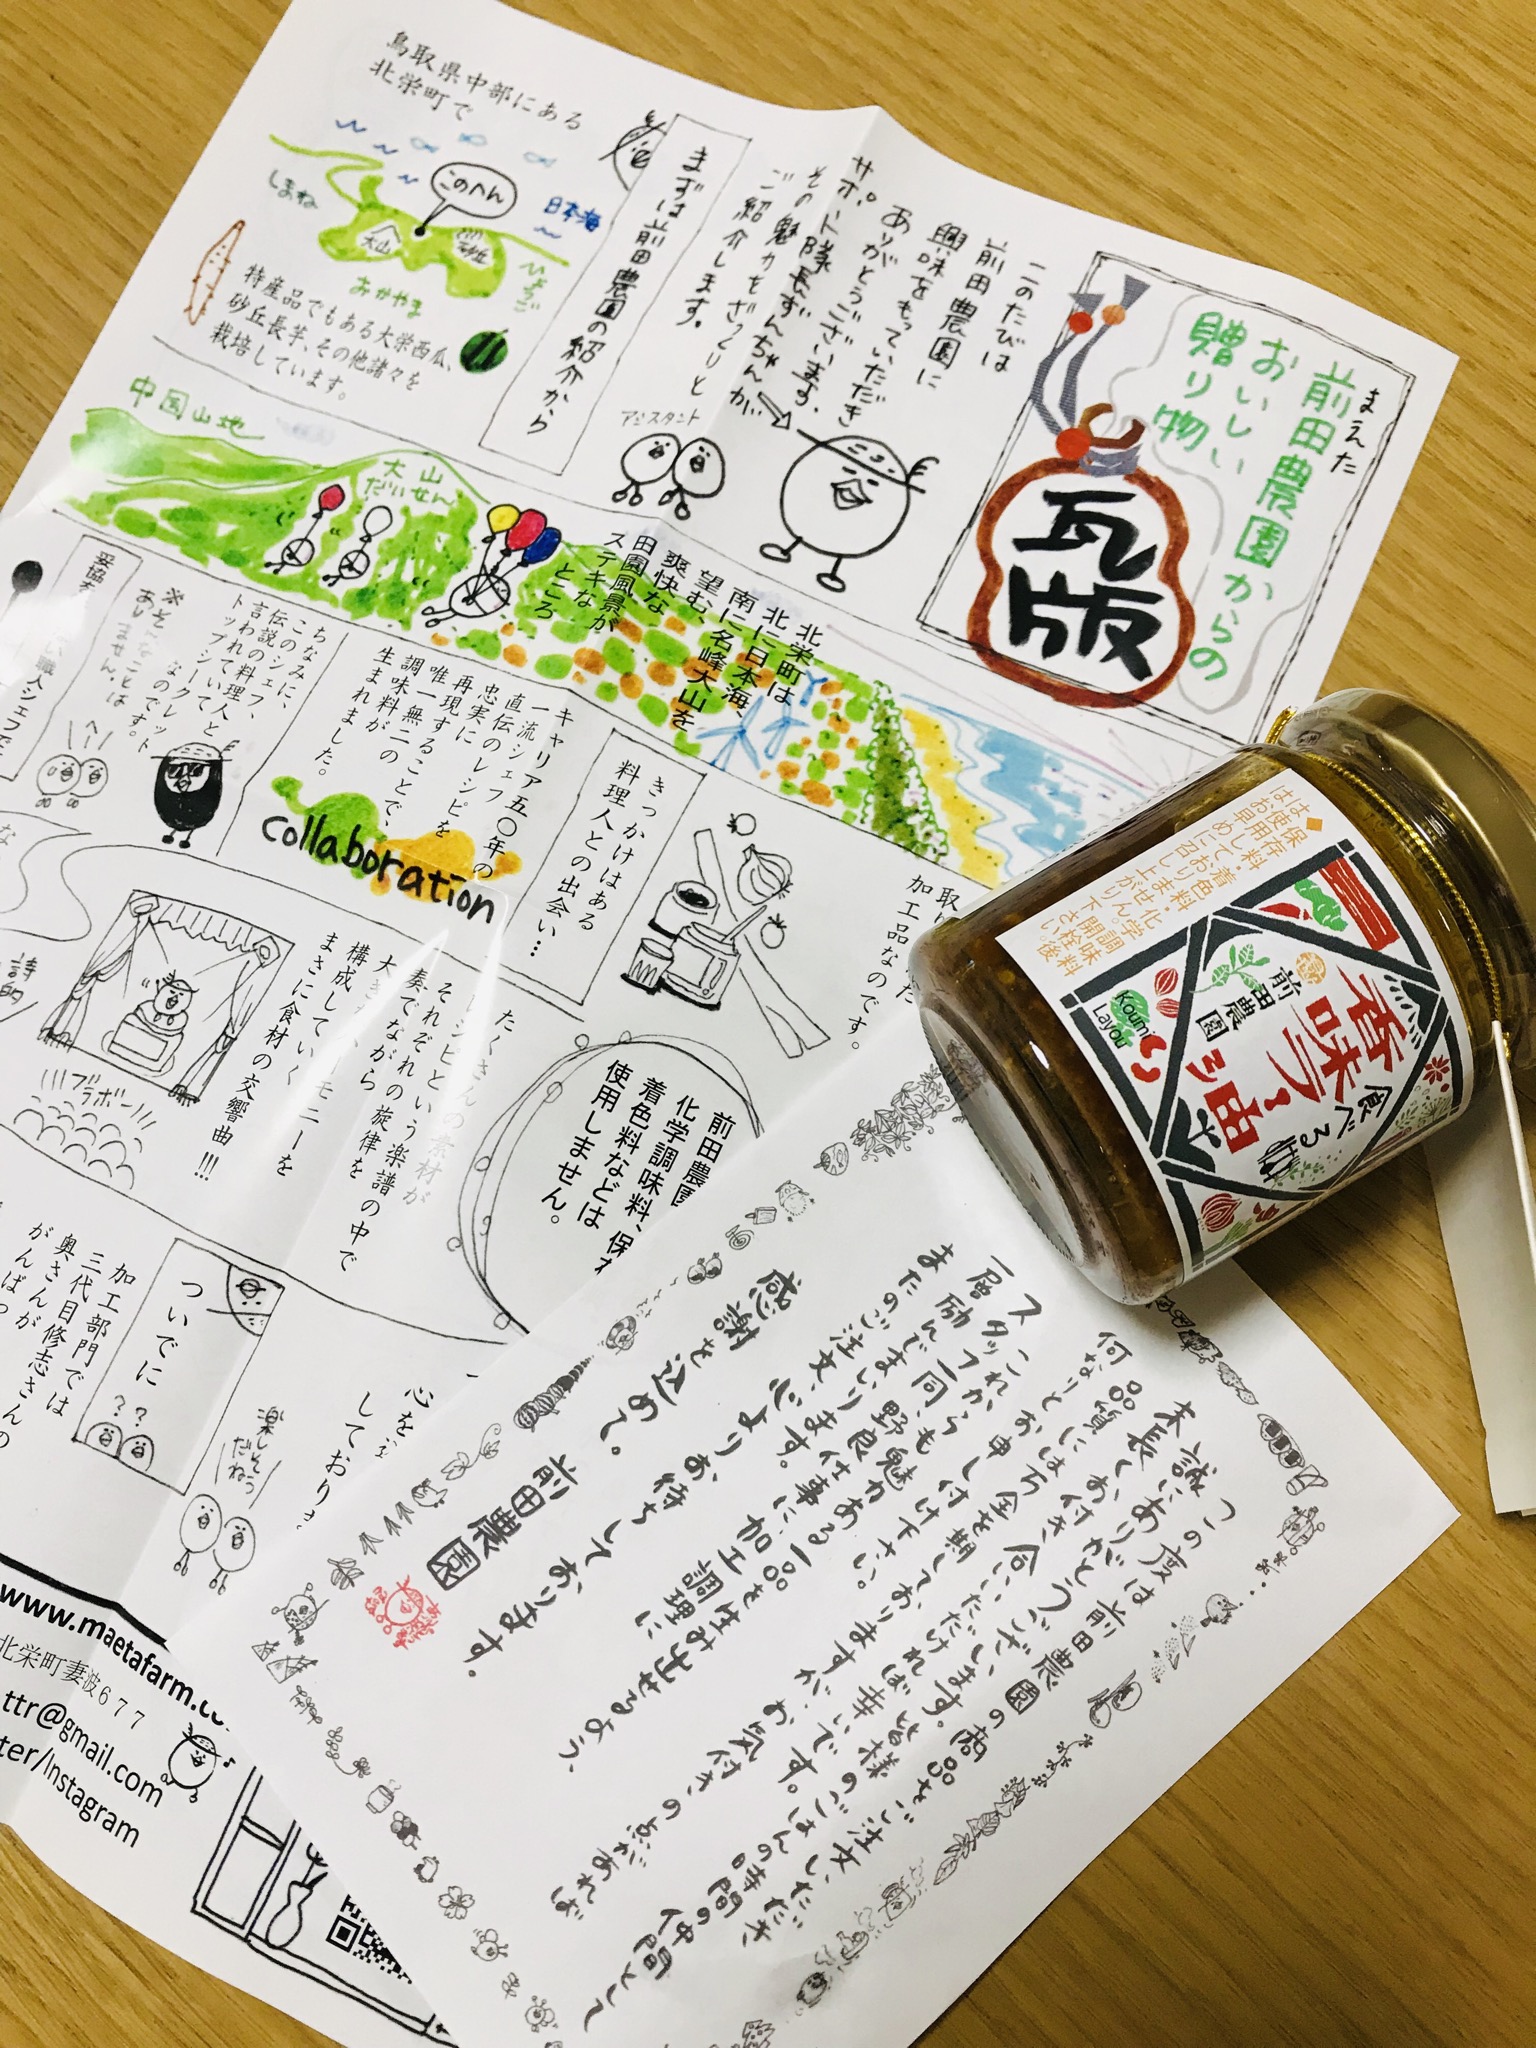 前田農園からの
まえた
おいしい
贈り物
瓦版
このたびは
前田農園に
興味をもっていただき
ありがとうございます。
サポート隊長ずんちゃんが
その魅力をざっくりと
ご紹介します。
アシスタント
まずは前田農園の紹介から
鳥取県中部にある
北栄町で
このへん
日本海
しまね
大山
砂丘
おかやま
ひょうご
特産品でもある大栄西瓜、
砂丘長芋、その他諸々を
栽培しています。
中国山地
大山
だいせん
北栄町は
北に日本海、
南に名峰大山を
望む、
爽快な
田園風景が
ステキな
ところ
取り
加工品なのです。
きっかけはある
料理人との出会い…
キャリア五〇年の
一流シェフ
直伝のレシピを
忠実に
再現することで、
唯一無二の
調味料が
生まれました。
collaboration
ちなみに、
このシェフ、
伝説の料理人と
言われていて
トップシークレット
なのです。
※そんなことは
ありません。
妥協
い職人シェフ
前田農園
化学調味料、保存
着色料などは
使用しません。
たくさんの素材が
レシピという楽譜の中で
それぞれの旋律を
奏でながら
大きなハーモニーを
構成していく
まさに食材の交響曲!!!
ブラボー
詩的
ついでに
??
加工部門では
三代目修志さんの
奥さんが
がんばっ
楽しそう
だねっ
心を
しております
www.maetafarm.co
北栄町妻波677
ttr@gmail.com
ter/Instagram
この度は前田農園の商品をご注文いただき、
誠にありがとうございます。
末長くお付き合いいただければ皆様のごはんの時間の仲間として
何なりとお申し付け下さい。
品質には万全を期しておりますが、お気付きの点があれば
これからも野良仕事に加工調理に
スタッフ一同、魅力ある一品を生み出せるよう、
一層励んでまいります。
またのご注文、心よりお待ちしております。
感謝を込めて。
前田農園
◆保存料・着色料・化学調味料
は使用しておりません。開栓後
はお早めに召し上がり下さい。
前田農園
Koumi
Layou
食べる
香味ラー油